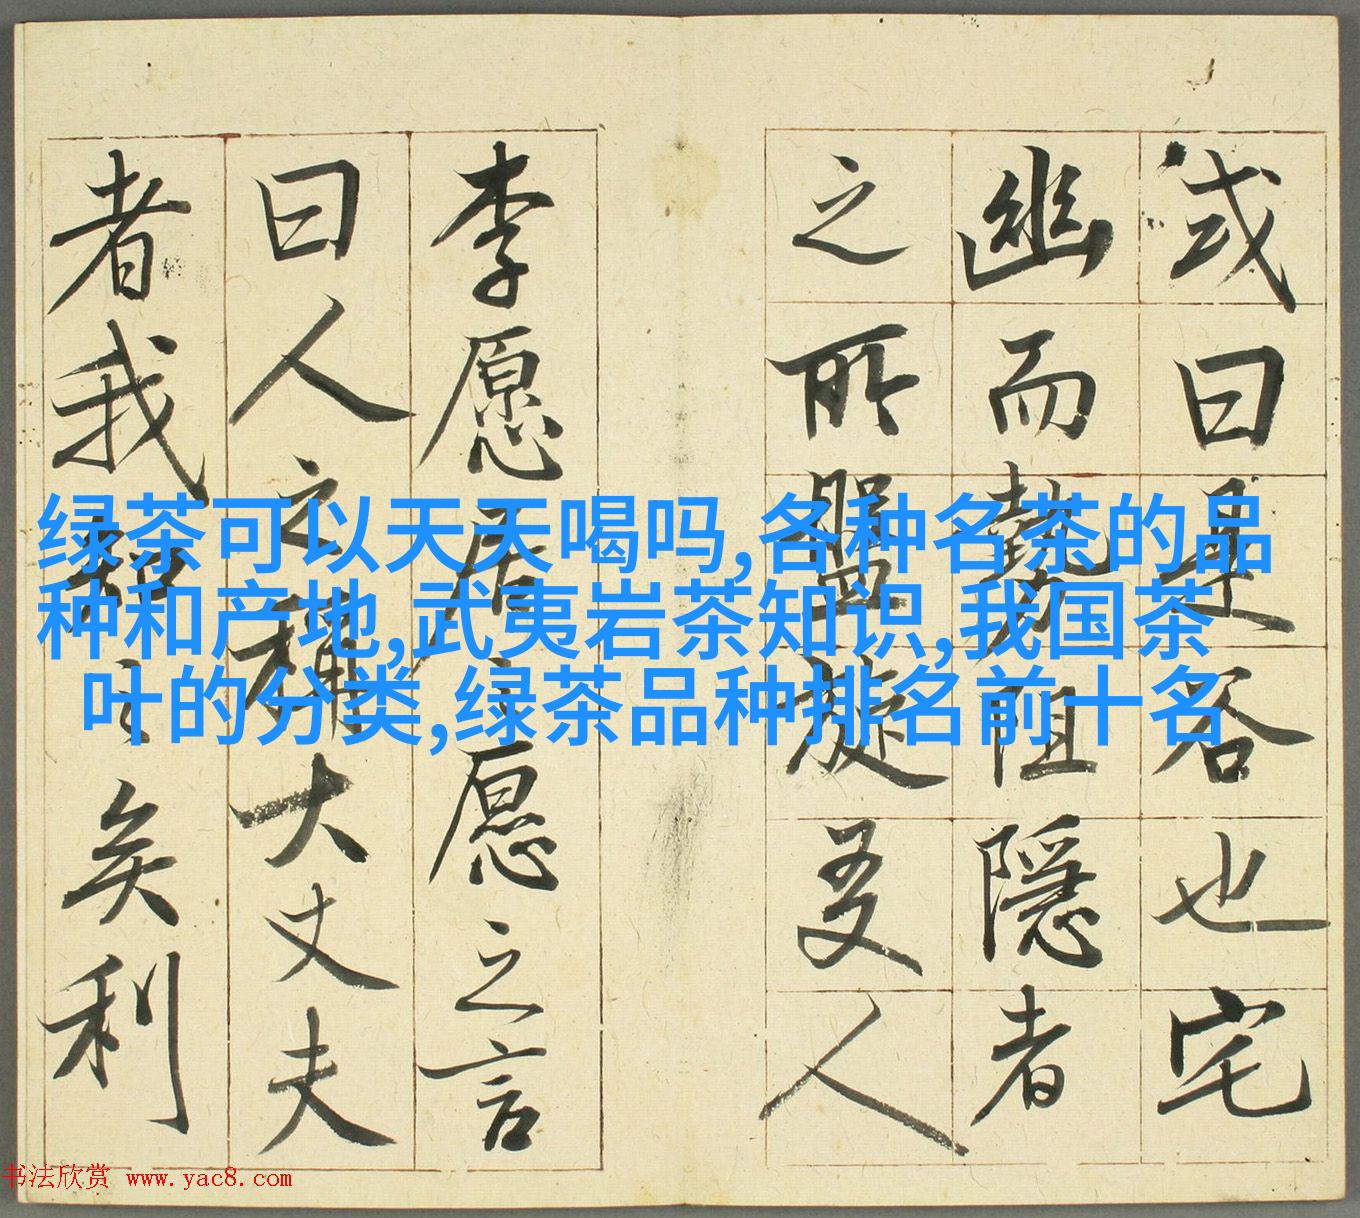 或曰是谷也宅
幽而勢阻隱者
之所盤旋友人
李愿居之愿之言
曰人之稱大丈夫
者我知之矣利
绿茶可以天天喝吗,各种名茶的品
种和产地,武夷岩茶知识,我国茶
叶的分类,绿茶品种排名前十名
书法欣赏 www.yac8.com